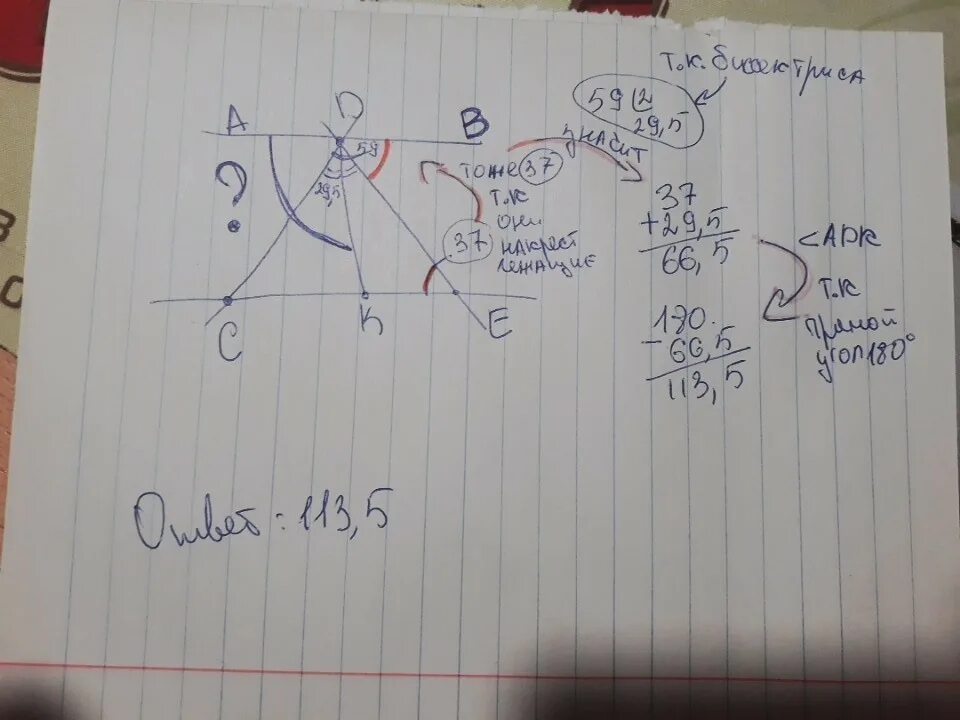 т.к. биссектриса
59 2
29,5
значит
A D B
59
тоже 37
т.к
они
накрест
лежащие
29,5
?
37
37
+29,5
66,5
<ADK
т.к
прямой
угол 180°
180
-66,5
113,5
C K E
Ответ: 113,5